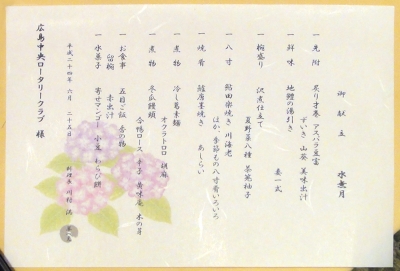 御献立 水無月
一 先附 炙り才巻 アスパラ豆富
ずいき 山葵 美味出汁
一 鮮味 地鰹の湯引き
妻一式
一 椀盛り 沢煮仕立て
夏野菜八種 茶筅柚子
一 八寸 鮎田楽焼き 川海老
ほか、季節もの八寸肴いろいろ
一 焼肴 鱸唐墨焼き あしらい
一 煮物 冷し葛素麺
オクラトロロ 胡麻
一 煮物 冬瓜饅頭
合鴨ロース 辛子 黄味庵 木の芽
一 お食事 五目ご飯 香の物
留椀 赤出汁
一 水菓子 寄せマンゴー 小豆 わらび餅
平成二十四年 六月 二十五日
料理長 川村
広島中央ロータリークラブ 様